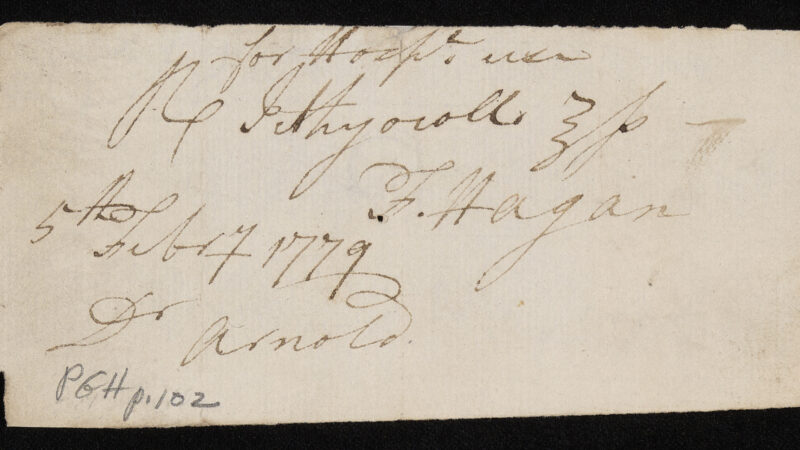 for Hosp.t use
℞ Icthyocoll. ℥ß
F. Hagan
5th Febry 1779
Dr Arnold.
PGH p.102